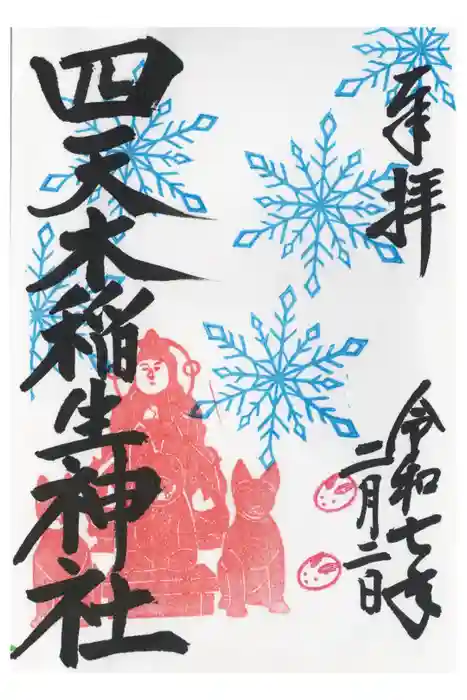 奉拝
令和七年
二月二日
四天木稲生神社